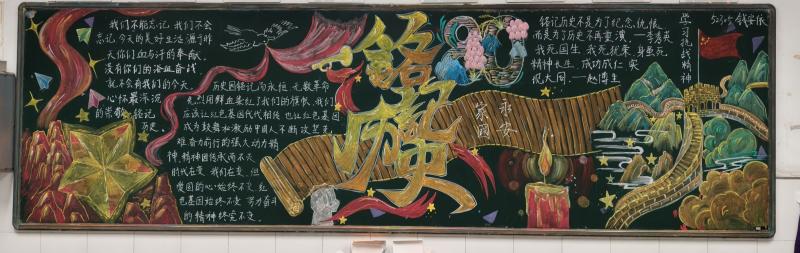 我们不能忘记,我们不会
忘记,今天的美好生活源于昨
天你们血与汗的奉献。
没有你们的浴血奋战
就不会有我们的今天。
心怀最深沉
的崇敬,铭记
历史。
历史因铭记而永恒,无数革命
先烈用鲜血染红了我们的旗帜,我们
应该让红色基因代代相传,也让红色基因
成为鼓舞和激励中国人不断攻坚克
难奋力前行的强大动力,精
神,精神因传承而不灭
时代在变,我们在变,但
爱国的心始终不变,红
色基因始终不变,努力奋斗
的精神终究不变。
铭记历史
80
家国
永安
铭记历史不是为了纪念仇恨,
而是为了历史不再重演。——李秀英
我死国生,我死犹荣,身虽死
精神长生,成功成仁,实
现大同。——赵博生
学习抗战精神